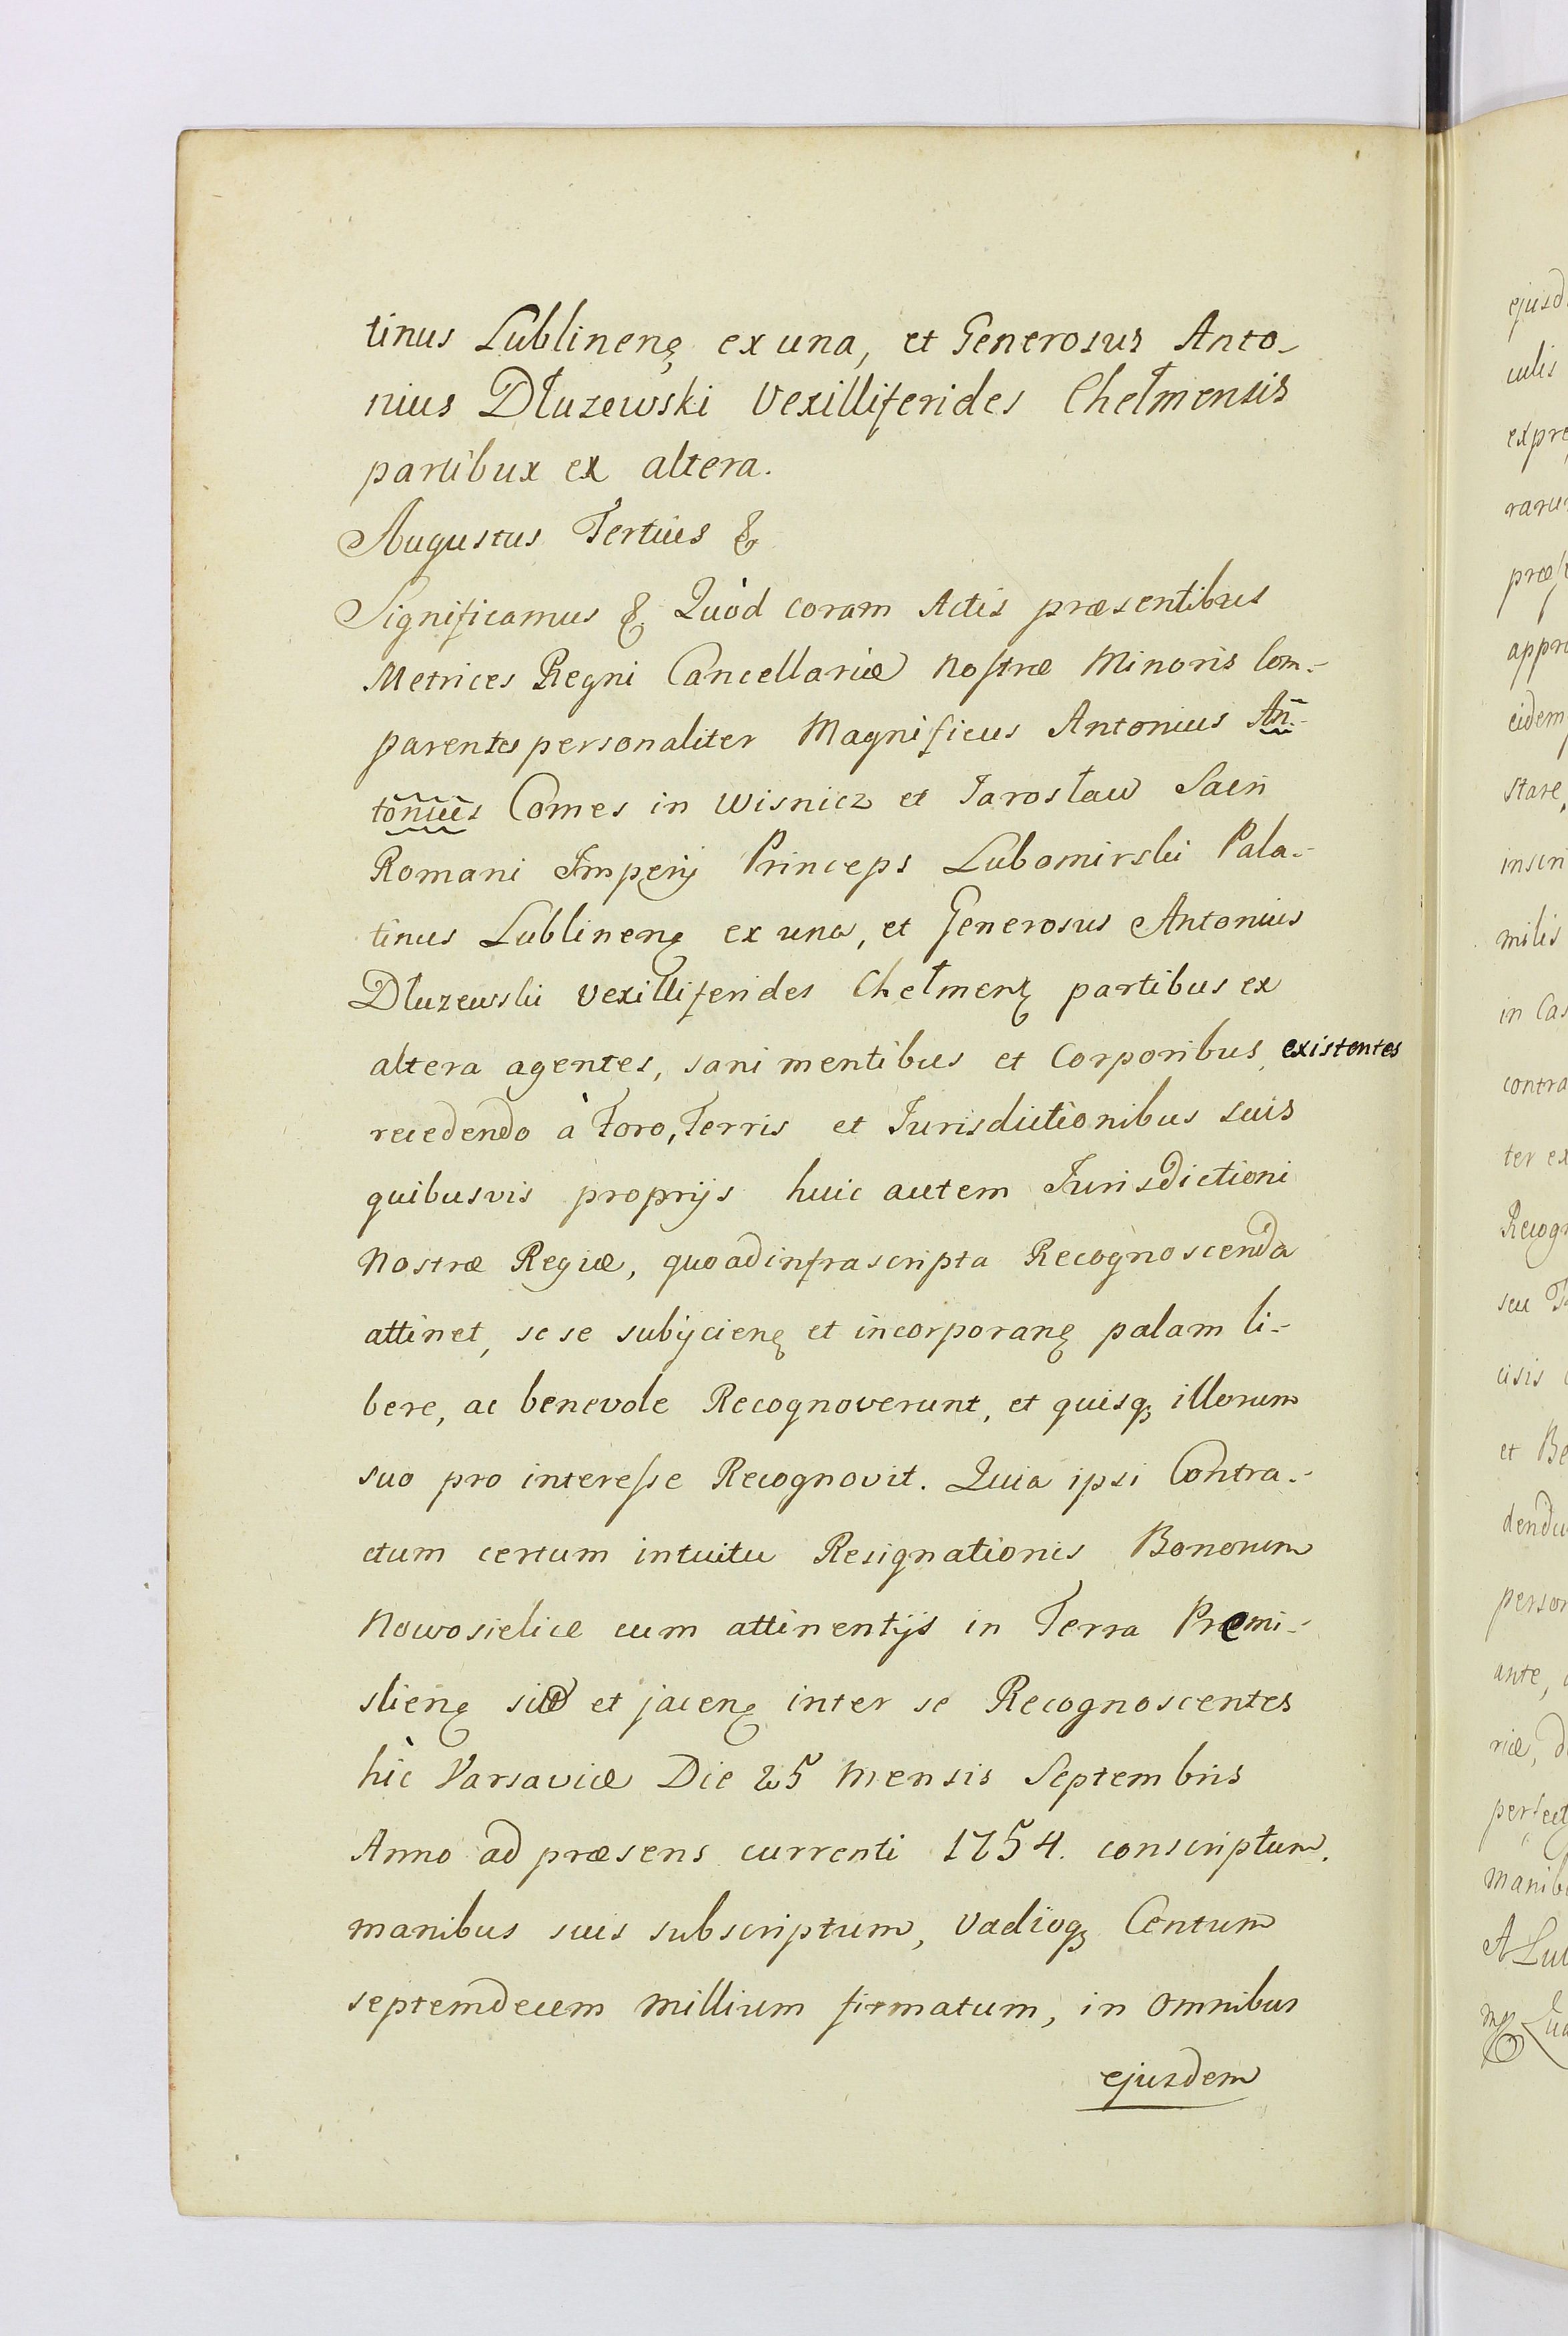 tinus Lublinenȩ ex una, et Generosus Anto-
nius Dłuzewski Vexilliferides Chełmensis
partibux ex altera.
Augustus Tertius &
Significamus & Quòd coram Actis præsentibus
Metrices Regni Cancellariæ Noſtræ Minoris Com-
parentes personaliter Magnificus Antonius An-
tonius Comes in Wisnicz et Jarosław Sacri
Romani Imperij Princeps Lubomirski Pala-
tinus Lublinenȩ ex una, et Generosus Antonius
Dłuzewski Vexilliferides Chełmenȩ partibus ex
altera agentes, sani mentibus et Corporibus existentes
recedendo à Foro, Terris et Jurisdictionibus suis
quibusvis proprijs huic autem Jurisdictioni
Nostræ Regiæ, quoad infrascripta Recognoscenda
attinet, se se subijcienȩ et incorporanȩ palam li-
bere, ac benevole Recognoverunt, et quisqꝫ illorum
suo pro intereſse Recognovit. Quia ipsi Contra-
ctum certum intuitu Resignationis Bonorum
Nowosielice cum attinentijs in Terra Premi-
slienȩ sitæ et jacenȩ inter se Recognoscentes
hìc Varsaviæ Die 25 Mensis Septembris
Anno ad præsens currenti 1754. conscriptum.
manibus suis subscriptum, Vadioqꝫ Centum
septemdecem Millium firmatum, in omnibus
ejusdem
ejusd
culis
expre
rarum
præſ
appro
eidem
stare,
inscri
milis
in Cas
contra
ter ex
Recogn
seu
cisis
et Bo
dendu
person
ante,
riæ, d
perfect
manib
A Lu